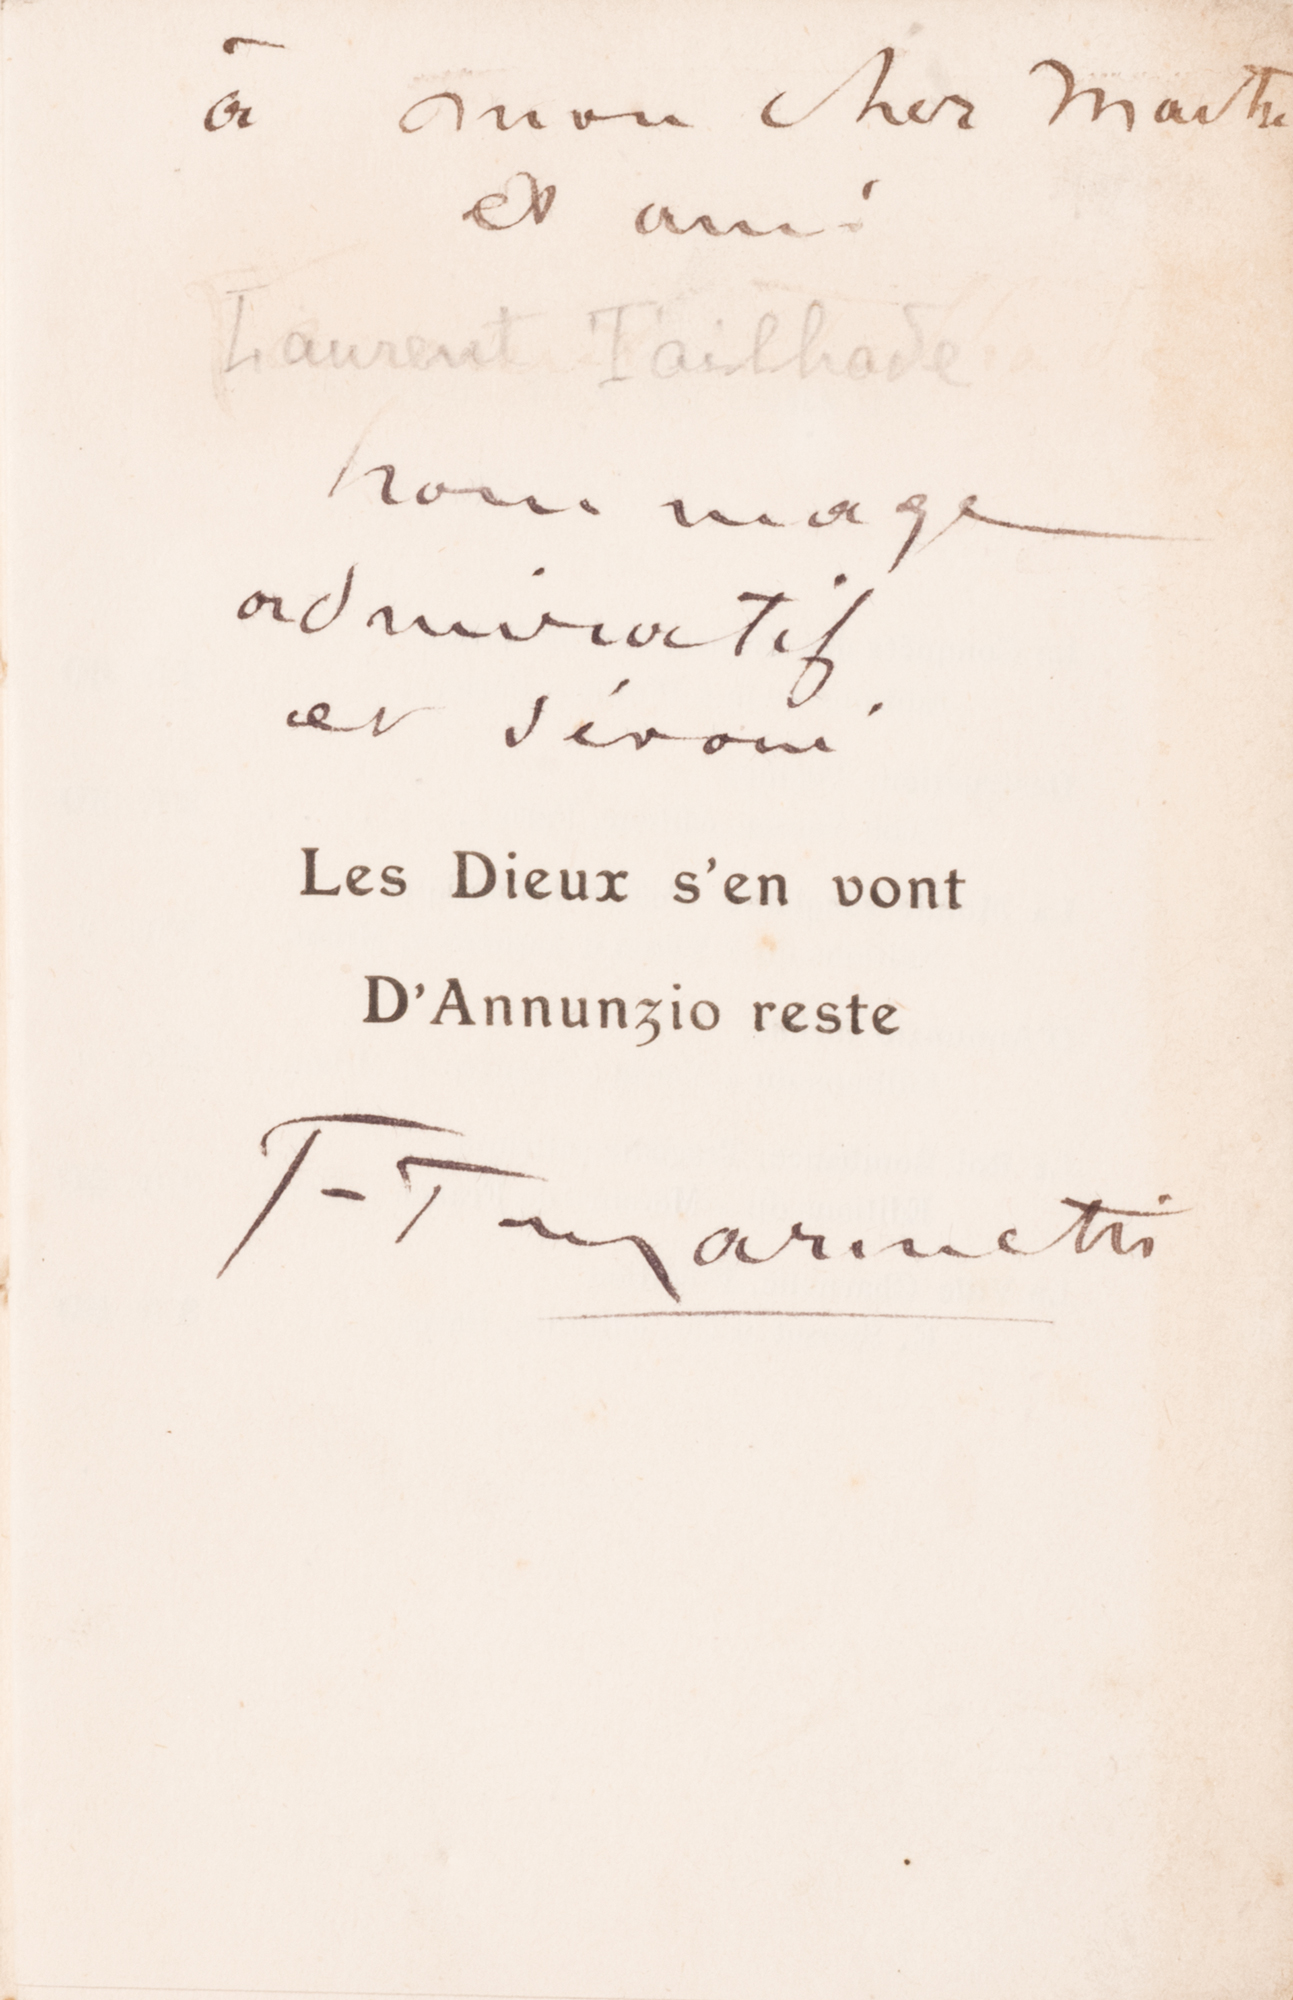 à mon cher Maître
et ami
Laurent Tailhade
hommage
admiratif
et dévoué
Les Dieux s'en vont
D'Annunzio reste
F-T Marinetti